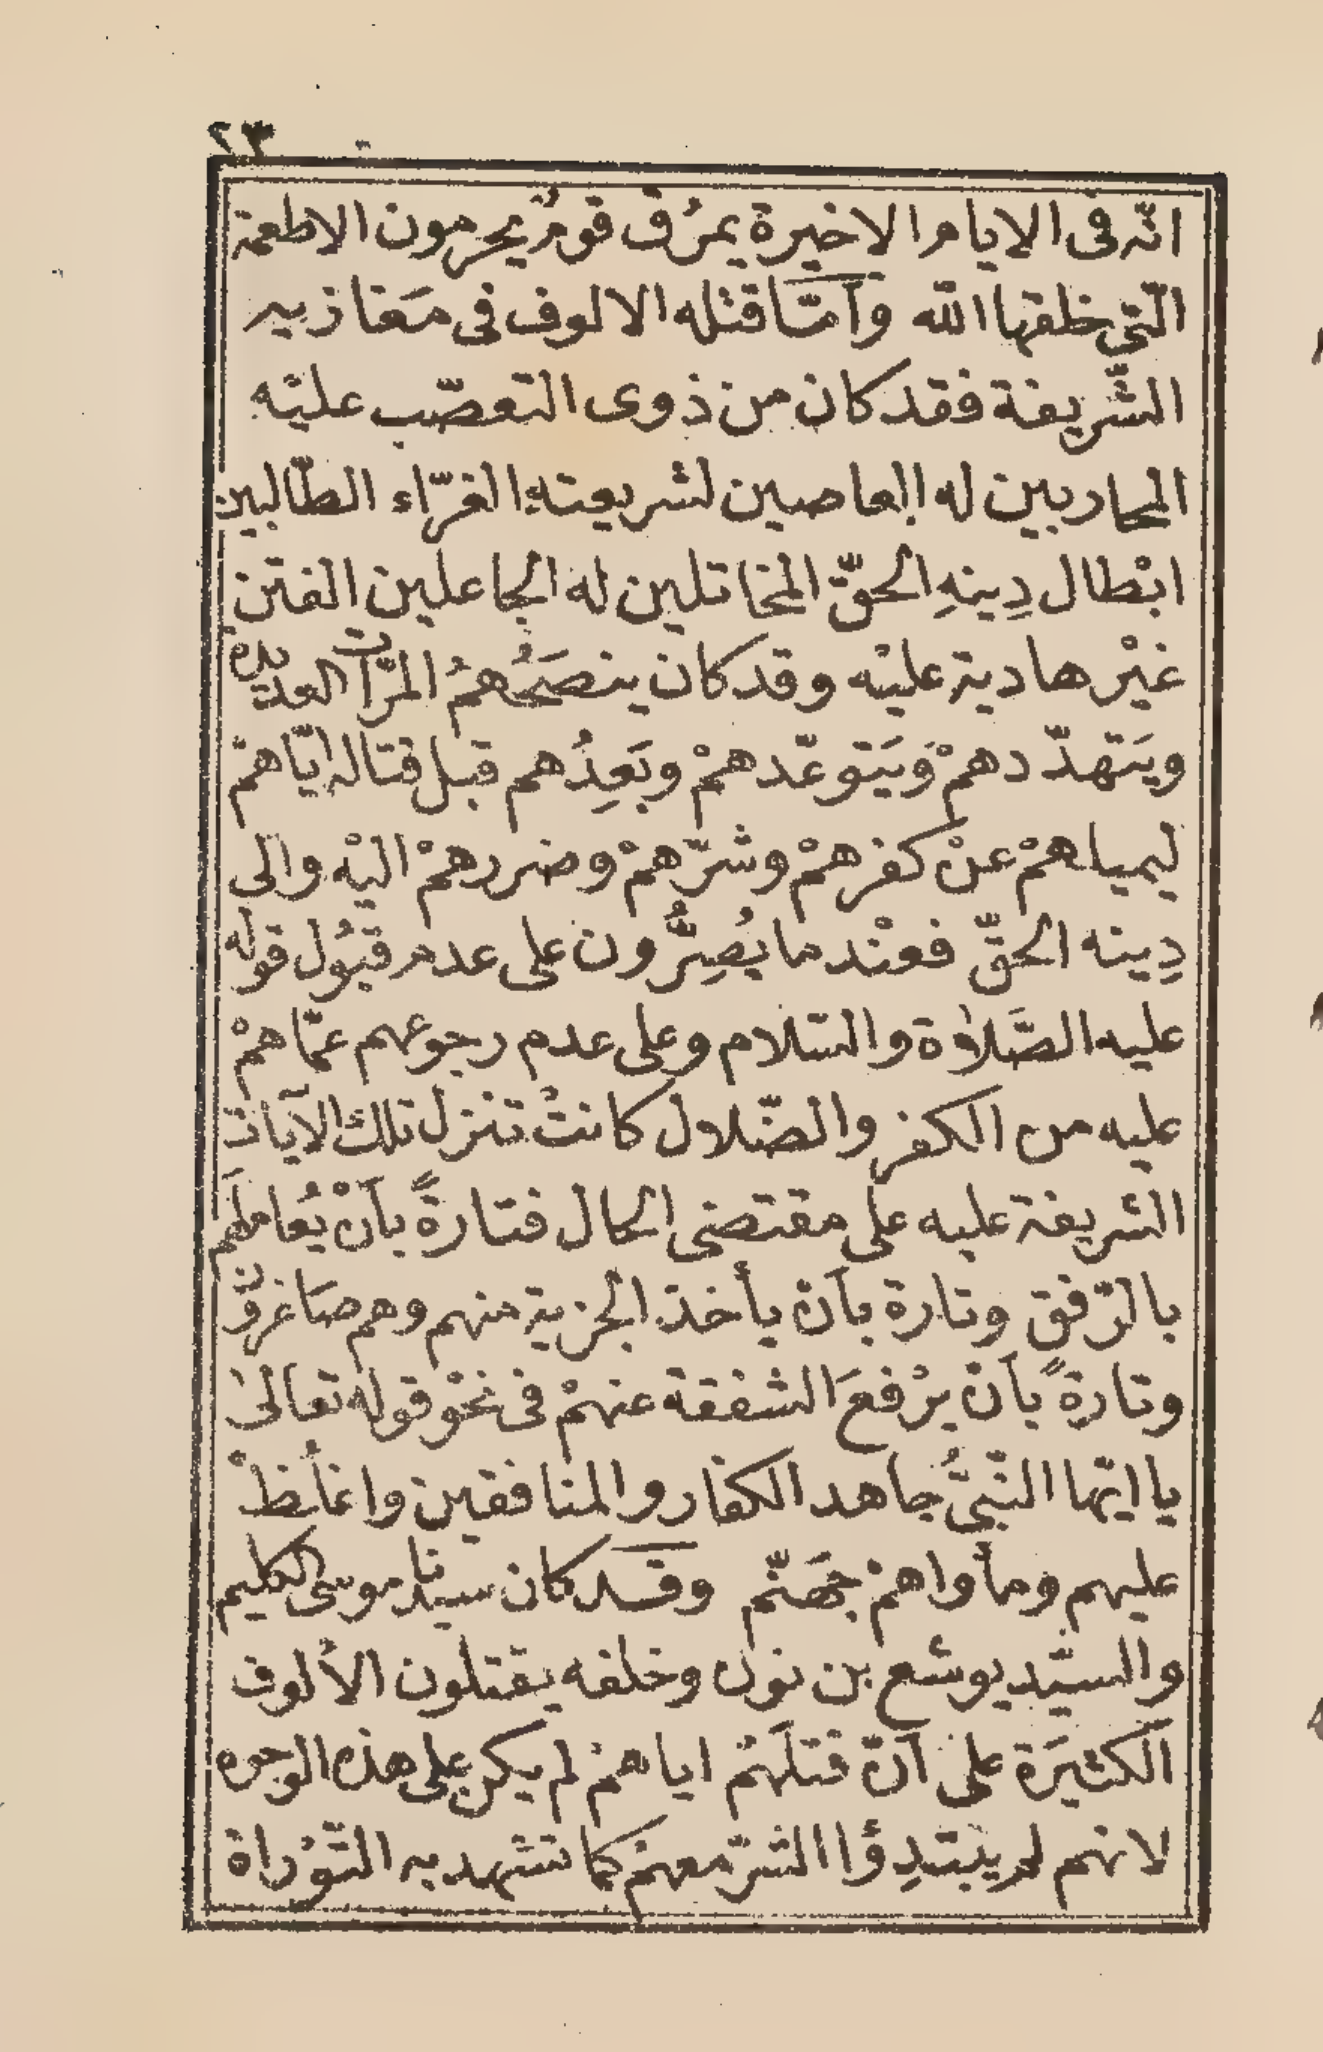 ٢٣
انّه فى الايام الاخيرة يمرُق قومٌ يحرمون الاطعمة
الّتى خلقها الله وأمّا قتله الالوف فى مَغازيه
الشّريفة فقد كان من ذوى التعصّب عليْه
المحاربين له العاصين لشريعتهِ الغرّاء الطّالبين
ابْطال دِينهِ الحقّ المخاتلين له الجاعلين الفتن
غيْر هادية عليْه وقد كان ينصَحُهمُ المرّات العديدة
ويَتهدّدهمْ وَيَتوعّدهمْ ويَعِدُهم قبل قتاله ايّاهمْ
ليميلهمْ عنْ كفرهمْ وشرّهمْ وضررهمْ اليْه والى
دِينه الحقِّ فعنْدما يُصِرُّون على عدم قبُول قوله
عليه الصَّلاٰة والسّلام وعلى عدم رجوعهم عمّا همْ
عليه من الكفر والضّلال كانتْ تنزل تلك الآيات
الشريفة عليه على مقتضى الحال فتارةً بأنْ يُعاملَهم
بالرّفق وتارة بأن يأخذ الجزية منهم وهم صَاغرونَ
وتارةً بأن يرْفعَ الشفقة عنهمْ فى نحْو قوله تعالىٰ
يا ايّها النّبىُّ جاهد الكفار والمنافقين واغلُظْ
عليهم ومأواهمْ جَهَنّم وقد كان سيدنا موسى الكليم
والسيّد يوشع بن نون وخلفه يقتلون الألوف
الكثيَرة على أنّ قتلَهمْ اياهمْ لم يكن على هذه الوجوه
لانهم لم يبتدِؤا الشرّ معهمْ كما تشهد به التّوْراة